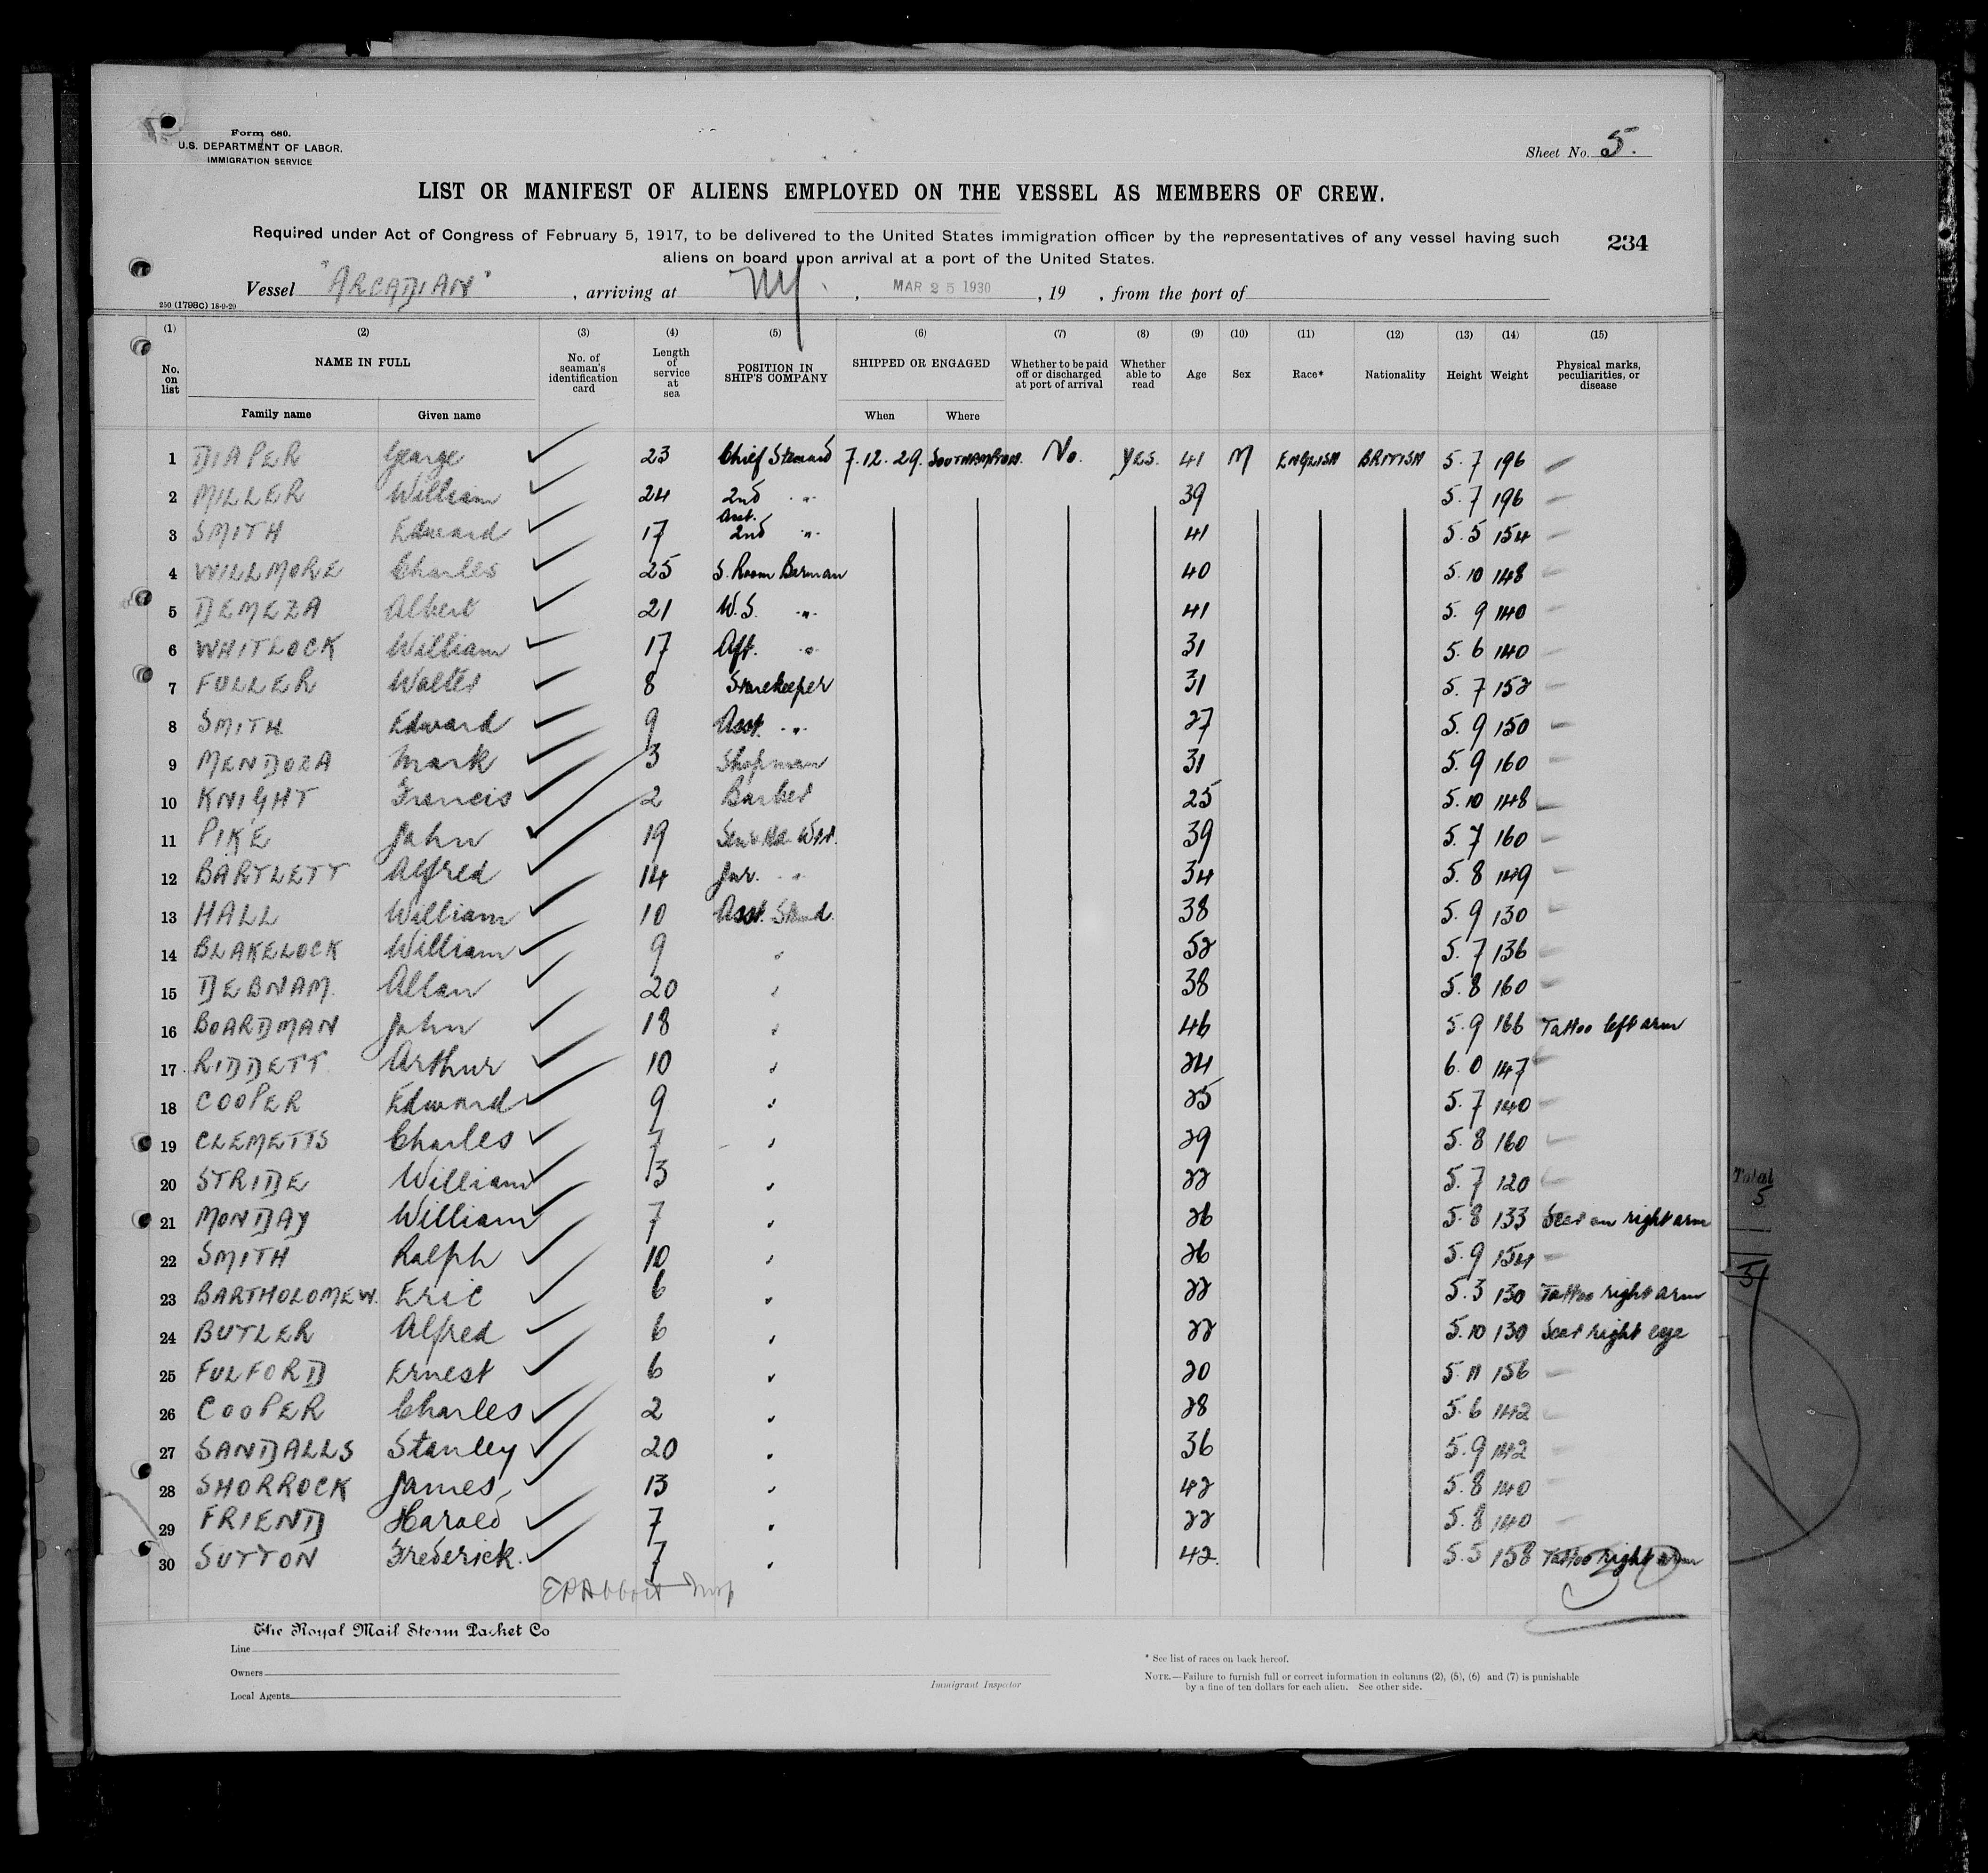 Form 680.
U.S. DEPARTMENT OF LABOR.
IMMIGRATION SERVICE
Sheet No. 5.
LIST OR MANIFEST OF ALIENS EMPLOYED ON THE VESSEL AS MEMBERS OF CREW.
Required under Act of Congress of February 5, 1917, to be delivered to the United States immigration officer by the representatives of any vessel having such
aliens on board upon arrival at a port of the United States.
234
Vessel "ARCADIAN", arriving at NY., MAR 25 1930, 19 , from the port of
250 (1798C) 18-9-29
(1) (2) (3) (4) (5) (6) (7) (8) (9) (10) (11) (12) (13) (14) (15)
No. on list NAME IN FULL Family name Given name No. of seaman's identification card Length of service at sea POSITION IN SHIP'S COMPANY SHIPPED OR ENGAGED When Where Whether to be paid off or discharged at port of arrival Whether able to read Age Sex Race* Nationality Height Weight Physical marks, peculiarities, or disease
1 DIAPER George 23 Chief Steward 7.12.29. SOUTHAMPTON. No. YES. 41 M ENGLISH BRITISH 5.7 196 —
2 MILLER William 24 2nd " 39 5.7 196 —
3 SMITH Edward 17 Asst. 2nd " 41 5.5 154 —
4 WILLMORE Charles 25 S. Room Barman 40 5.10 148 —
5 DEMEZA Albert 21 W.S. " 41 5.9 140 —
6 WHITLOCK William 17 Aft. " 31 5.6 140 —
7 FULLER Walter 8 Storekeeper 31 5.7 152 —
8 SMITH Edward 9 Asst. " 27 5.9 150 —
9 MENDOZA Mark 3 Shopman 31 5.9 160 —
10 KNIGHT Francis 2 Barber 25 5.10 148 —
11 PIKE John 19 39 5.7 160 —
12 BARTLETT Alfred 14 Jnr. " 34 5.8 149 —
13 HALL William 10 Asst. Stwd. 38 5.9 130 —
14 BLAKELOCK William 9 " 52 5.7 136 —
15 DEBNAM. Allan 20 " 38 5.8 160 —
16 BOARDMAN John 18 " 46 5.9 166 Tattoo left arm
17 RIDDETT. Arthur 10 " 24 6.0 147 —
18 COOPER Edward 9 " 25 5.7 140 —
19 CLEMETTS Charles 7 " 29 5.8 160 —
20 STRIDE William 3 " 22 5.7 120 —
21 MONDAY William 7 " 26 5.8 133 Scar on right arm
22 SMITH Ralph 10 " 26 5.9 154 —
23 BARTHOLOMEW. Eric 6 " 22 5.3 130 Tattoo right arm
24 BUTLER Alfred 6 " 22 5.10 130 Scar right eye
25 FULFORD Ernest 6 " 20 5.11 156 —
26 COOPER Charles 2 " 28 5.6 142 —
27 SANDALLS Stanley 20 " 36 5.9 142 —
28 SHORROCK James 13 " 42 5.8 140 —
29 FRIEND Harold 7 " 22 5.8 140 —
30 SUTTON Frederick. 7 " 42. 5.5 158 Tattoo right arm
EP Abbott Insp
The Royal Mail Steam Packet Co
Line
Owners
Local Agents
Immigrant Inspector
* See list of races on back hereof.
NOTE.—Failure to furnish full or correct information in columns (2), (5), (6) and (7) is punishable
by a fine of ten dollars for each alien. See other side.
Total
5